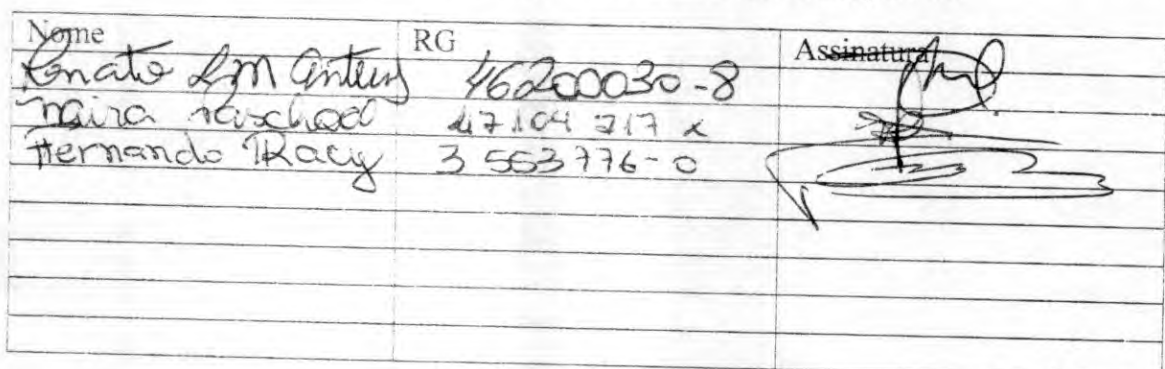 Nome RG Assinatura
Renato LM Anteus 46200030-8
Naira 47104717 X
Hernando Racy 3553776-0